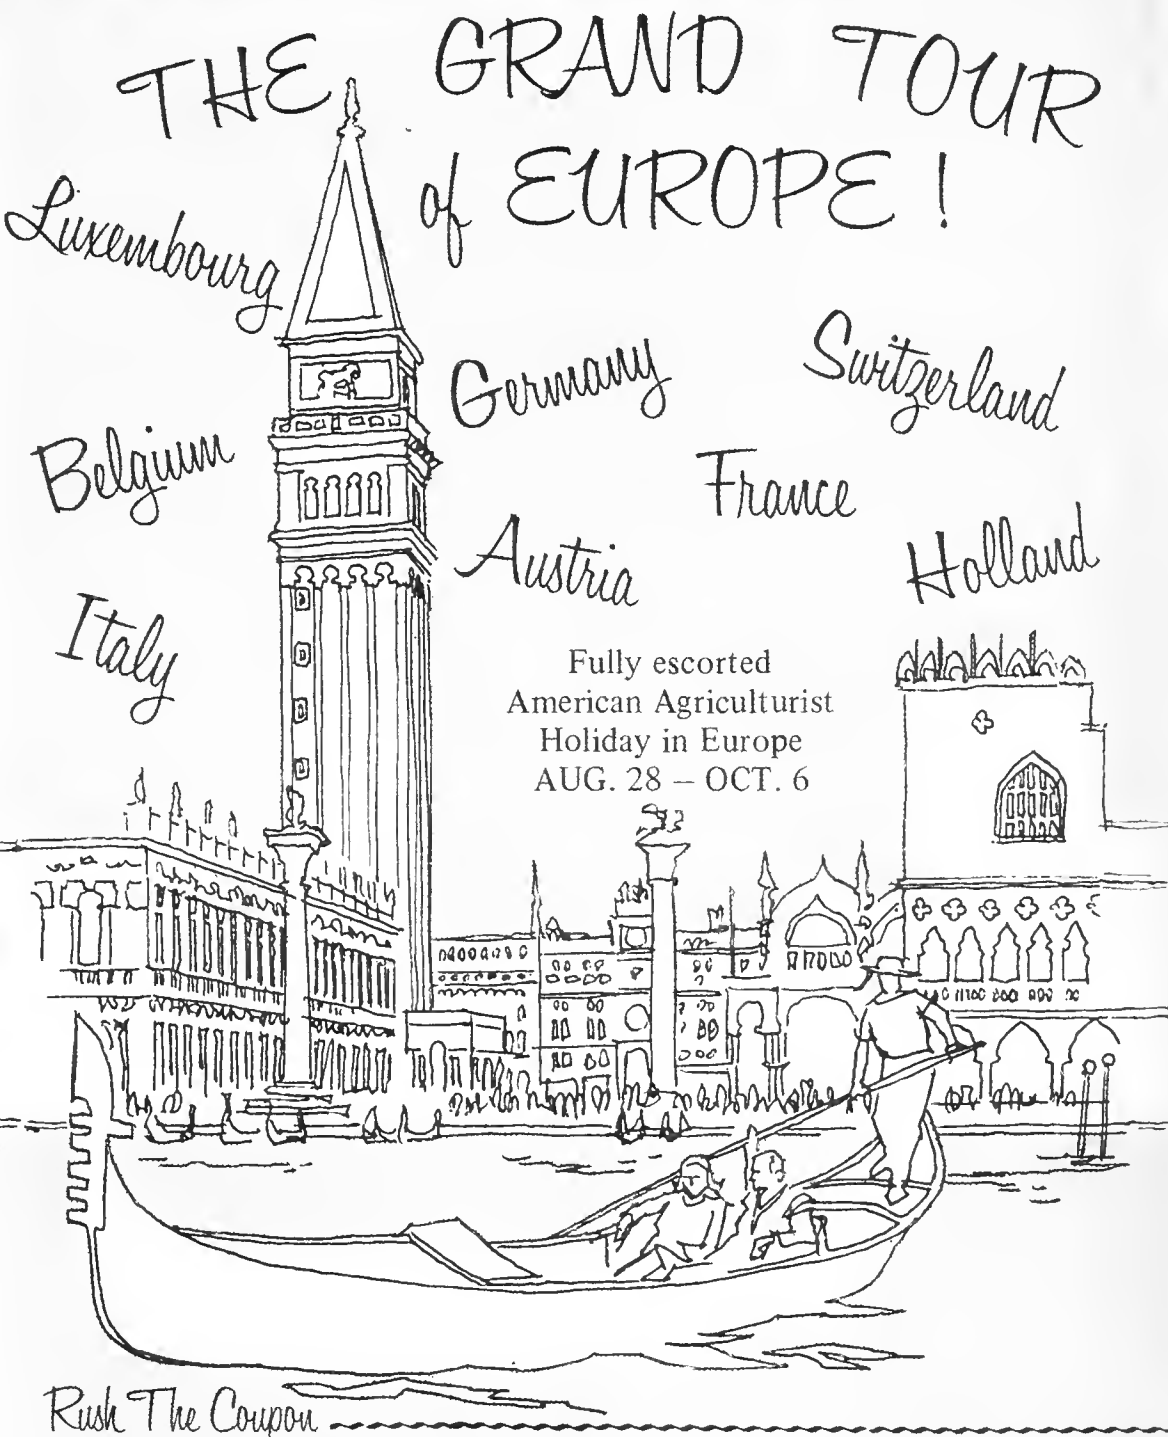 THE GRAND TOUR
of EUROPE!
Luxembourg
Germany
Switzerland
Belgium
France
Austria
Holland
Italy
Fully escorted
American Agriculturist
Holiday in Europe
AUG. 28 — OCT. 6
Rush The Coupon